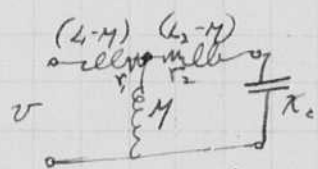 (L-M) (L₂-M)
r₁ r₂
v M Xc